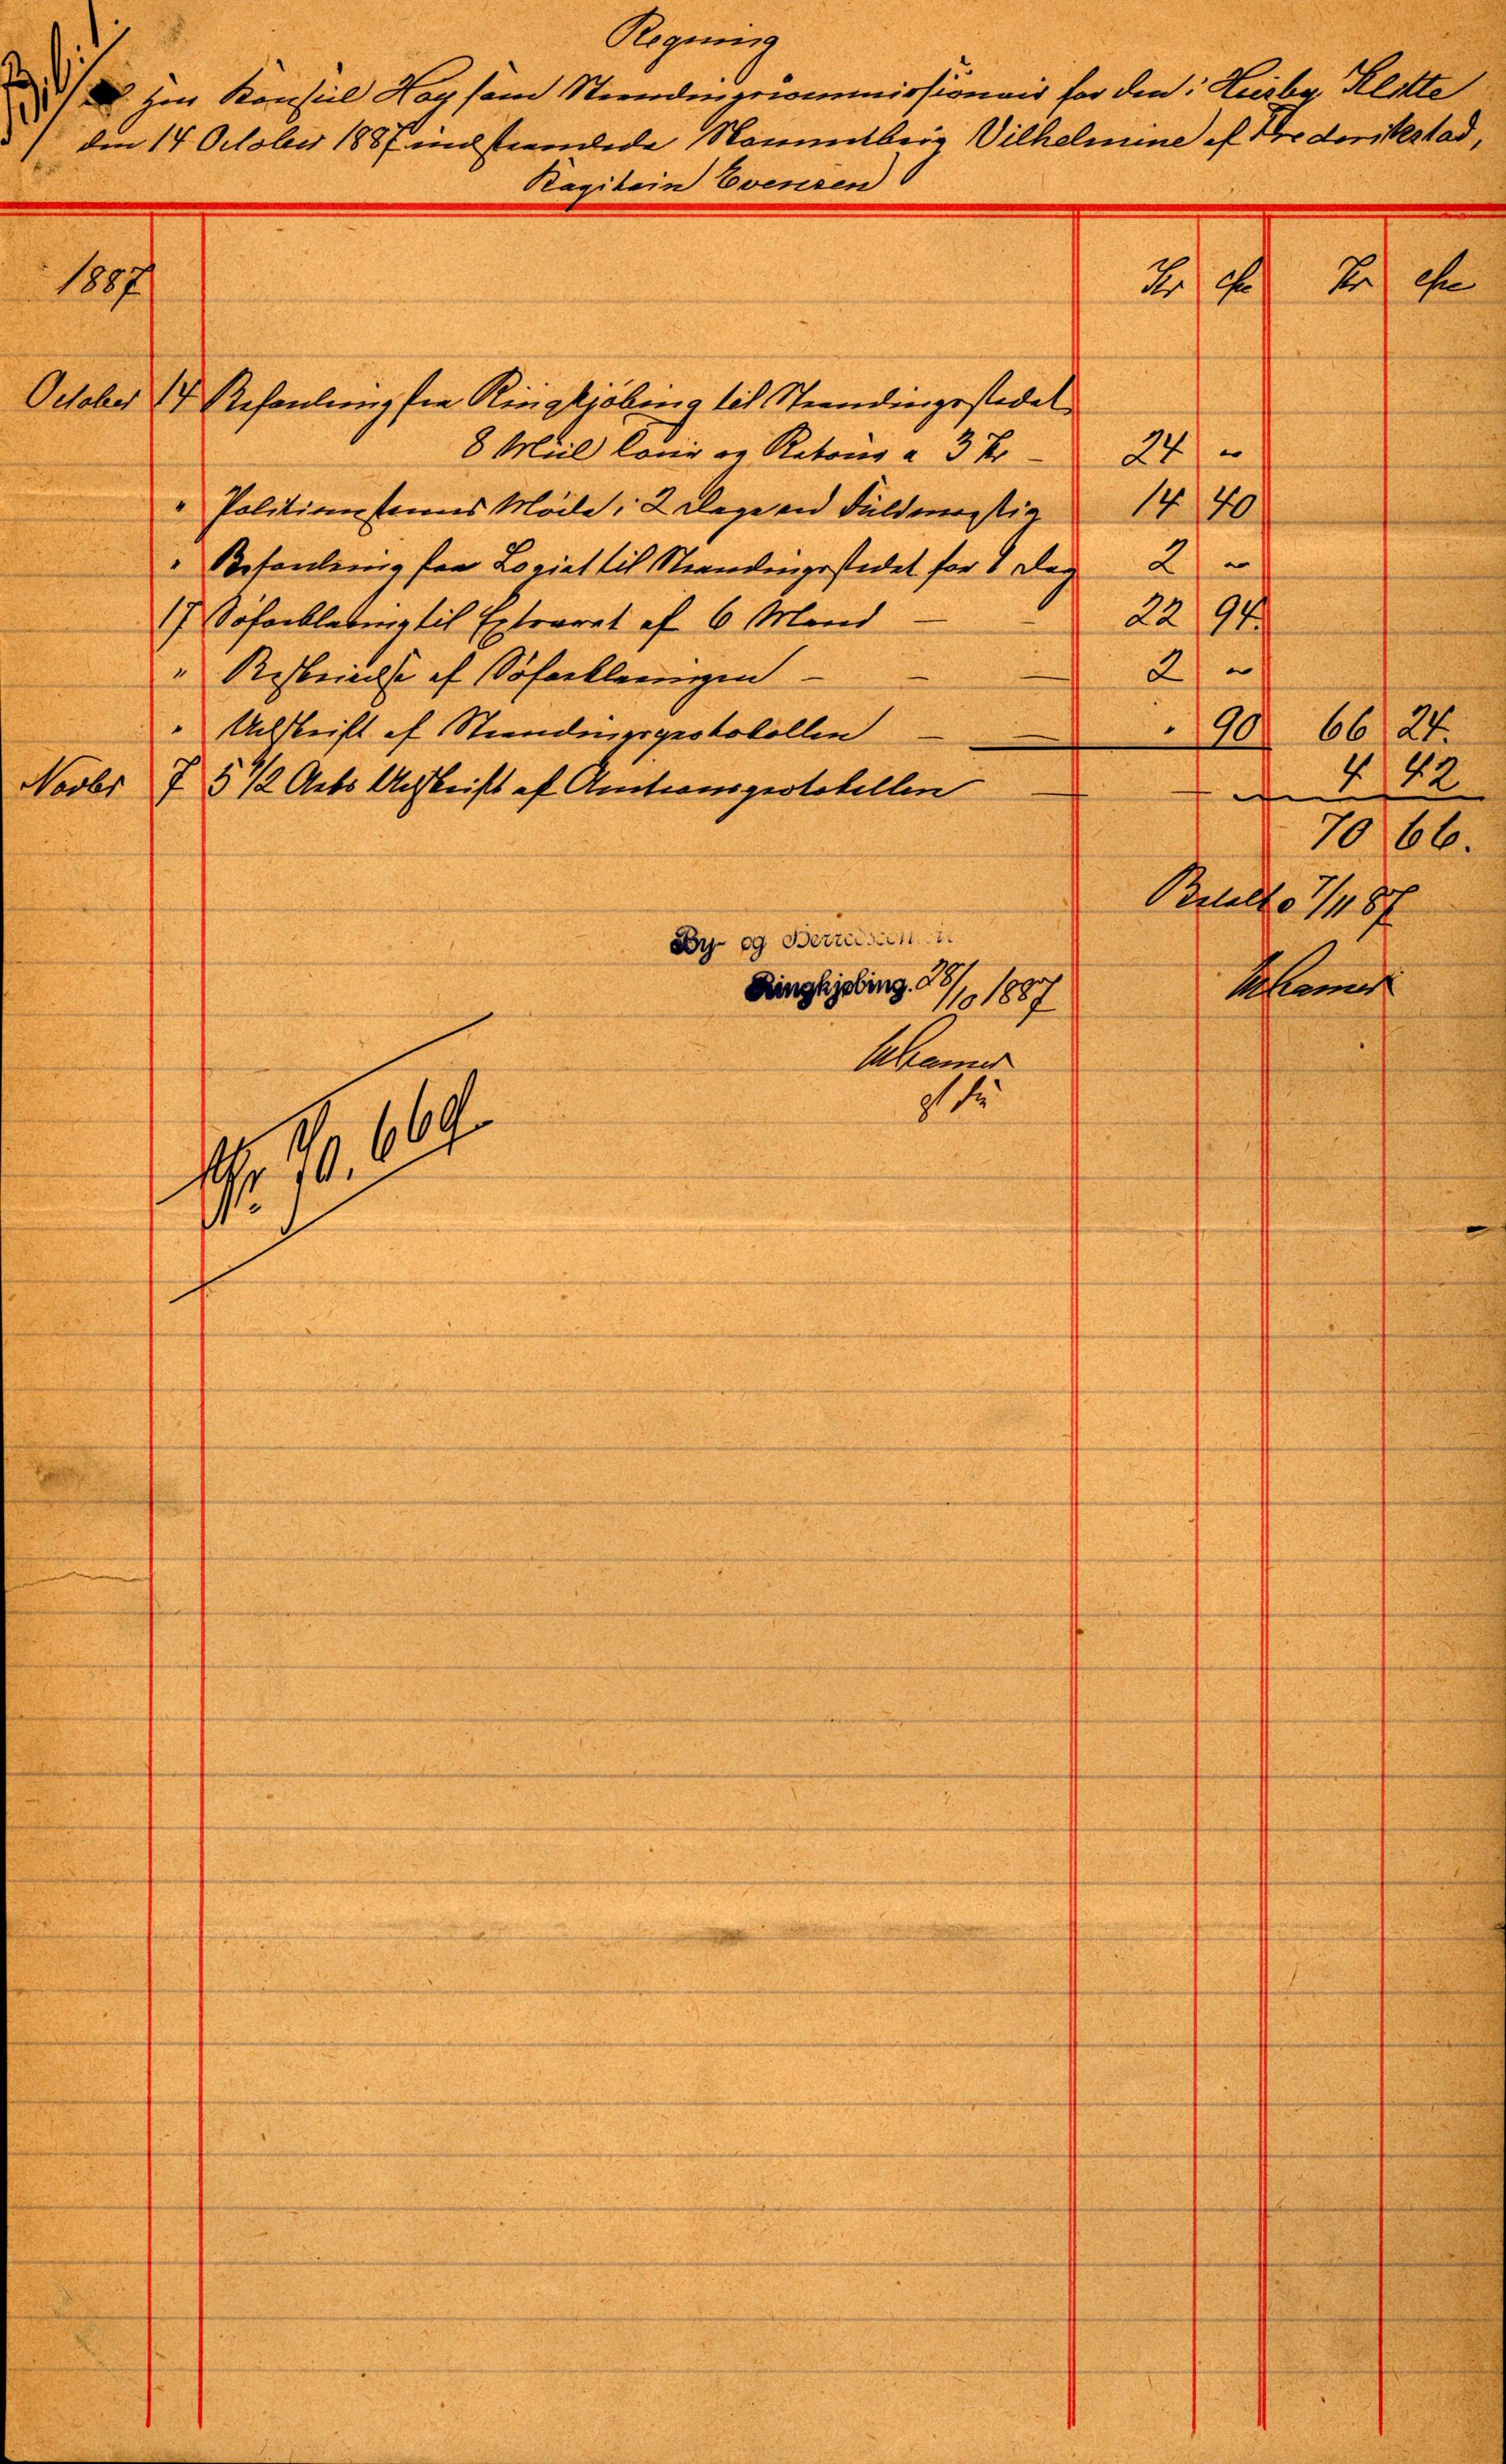 Regning
Bil. 1.
til Herr Konsul Hay som Strandingscommissionair for den i Huusby Klitte
den 14 October 1887 indstrandede Skonnertbrig Vilhelmine af Frederikstad,
Kapitain Evensen
1887 Kr Øre Kr Øre
October 14 Befordring fra Ringkjøbing til Strandingsstedet
8 Miil Tour og Retour a 3 Kr — 24 "
" Politimesterens Møde i 2 Dage ved Fuldmægtig 14 40
" Befordring fra Logiet til Strandingsstedet for 1 Dag 2 "
17 Søforklaring til Extraret af 6 Mand — — 22 94.
" Beskrivelse af Søforklaringen — — — 2 "
" Udskrift af Strandingsprotokollen — — " 90 66 24.
Novbr 7 5 1/2 Arks Udskrift af Auctionsprotokollen — — 4 42
70 66.
Betalt d 7/11 87
By- og Herredscontoret
Ringkjøbing. 28/10 1887
cst fm
Kr. 70. 66Ø